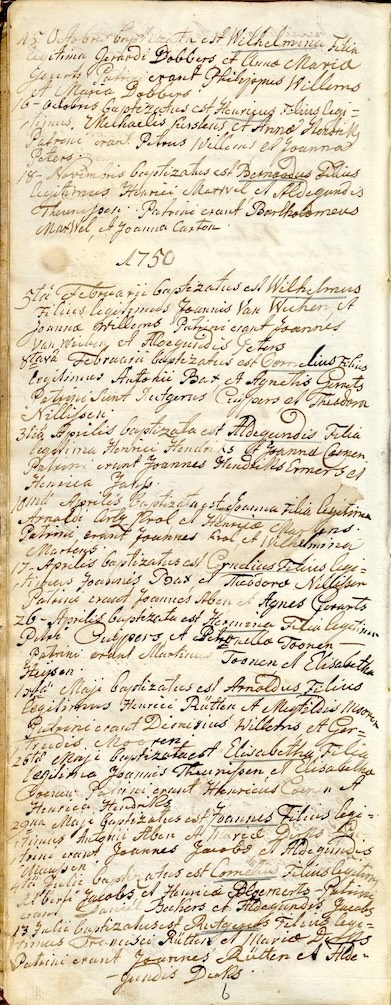 15 Octobris baptizata est Wilhelmina Filia
legitima Gerardi Dobbers et Anna Maria
Geerts Patrini erant Philippus Willems
et Maria Dobbers
16 - octobris baptizatus est Henricus Filius legi-
timus Michaelis et Annæ
Patrini erant Petrus Willems et Joanna
Peters
18 - Novembris baptizatus est Bernardus Filius
legitimus Henrici Maxwel et Aldegundis
Theunissen. Patrini erant Bartholomeus
Maxwel, et Joanna Carton.
1750
5ta Februarij baptizatus est Wilhelmus
Filius legitimus Joannis Van Wichen et
Joannæ Willems Patrini erant Joannes
Van Wichen et Aldegundis Peters
8tava Februarij baptizatus est Cornelius Filius
legitimus Antonii Bax et Agnetis Gerrits
Patrini sunt Rutgerus Cuijpers et Theodora
Nillissen.
3tia Aprilis baptizata est Aldegundis Filia
legitima Henrici Hendrix et Joannæ Coenen
Patrini erant Joannes Hendriks Ermers et
Henrica
Aprilis Baptizata est Joanna Filia legitima
Arnoldi Krol et Henricæ Martens.
Patrini erant Joannes Krol et Wilhelmina
Martens
17 - Aprilis baptizatus est Cornelius Filius legi-
timus Joannis Bax et Theodoræ Nillissen
Patrini erant Joannes Aben et Agnes Gerarts
26 - Aprilis baptizata est Hermina Filia legitima
Petri Cuijpers et Petronella Toonen -
Patrini erant Martinus Toonen et Elisabetha
Heijsen
Maji baptizatus est Arnoldus Filius
legitimus Henrici Rutten et Mechtildis Mooren
Patrini erant Dionisius Willems et Ger-
trudis Mooren.
26ta Maji baptizata est Elisabetha Filia
legitima Joannis Theunissen et Elisabetha
Coenen Patrini erant Henricus Coenen et
Henrica Hendriks
29na Maji baptizatus est Joannes Filius legi-
timus Antonii Aben et Maria Derks Pa-
trini erant Joannes Jacobs et Aldegundis
4ta Julii baptizatus est Cornelius Filius legitimus
Alberti Jacobs et Henricæ Patrini
erant Daniel Beckers et Aldegundis Jacobs
13 Julii baptizatus est Rutgerus Filius legi-
timus Francisci Rütten et Mariæ Derks
Patrini erant Joannes Rütten et Alde-
gundis Derks.
6